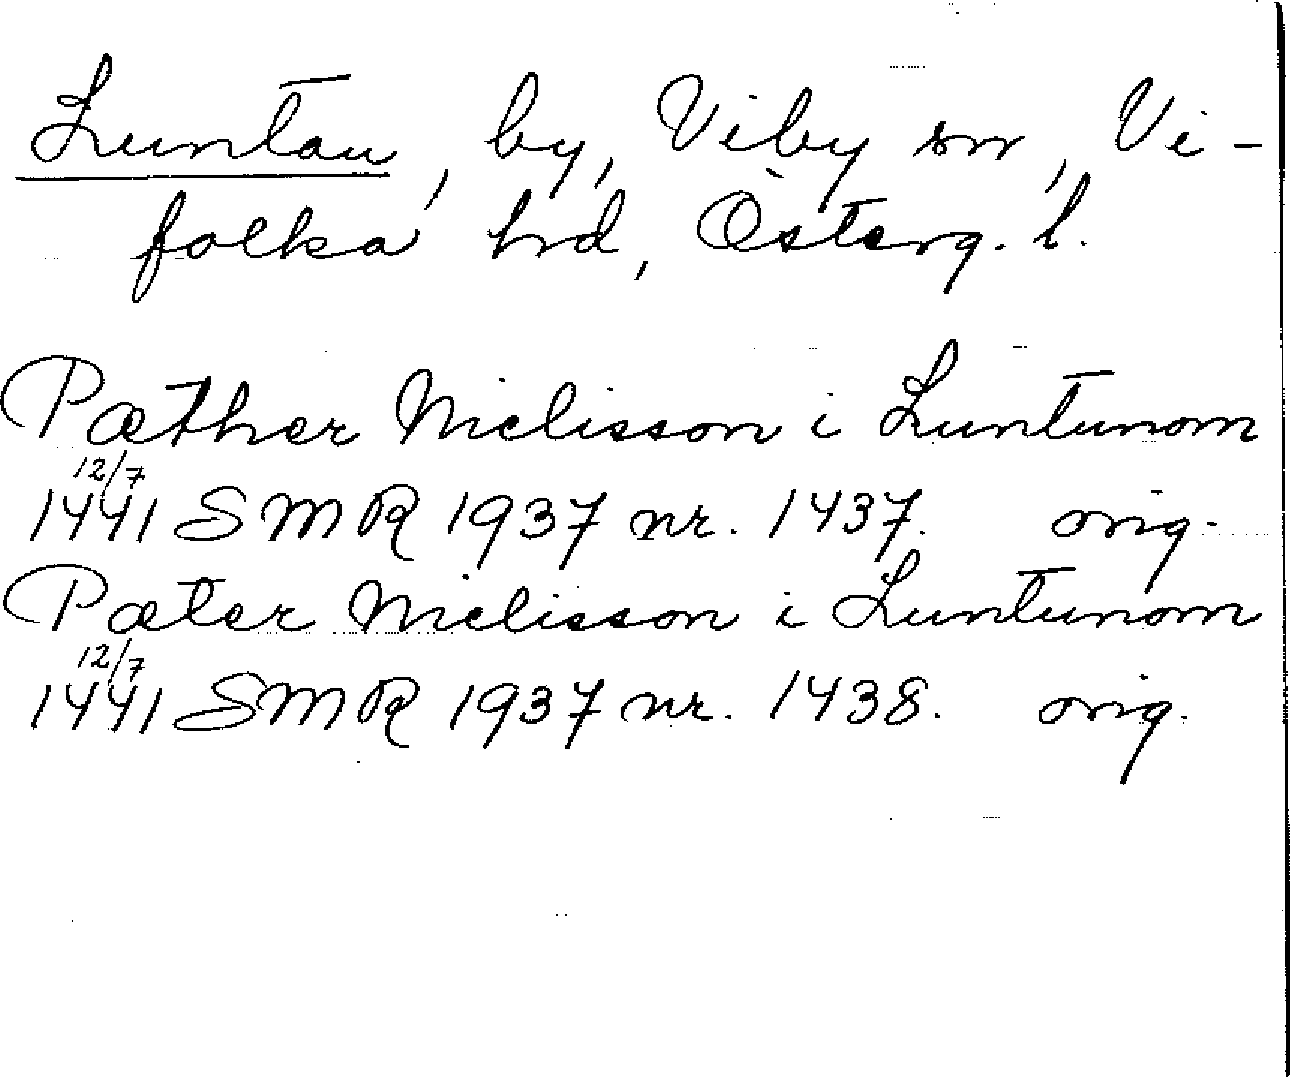 Luntan, by, Viby sn, Vi-
folka hd, Österg. l.
Pæther Nielisson i Luntunom
12/7
1441 SMR 1937 nr. 1437. orig.
Pæter Nielisson i Luntunom
12/7
1441 SMR 1937 nr. 1438. orig.